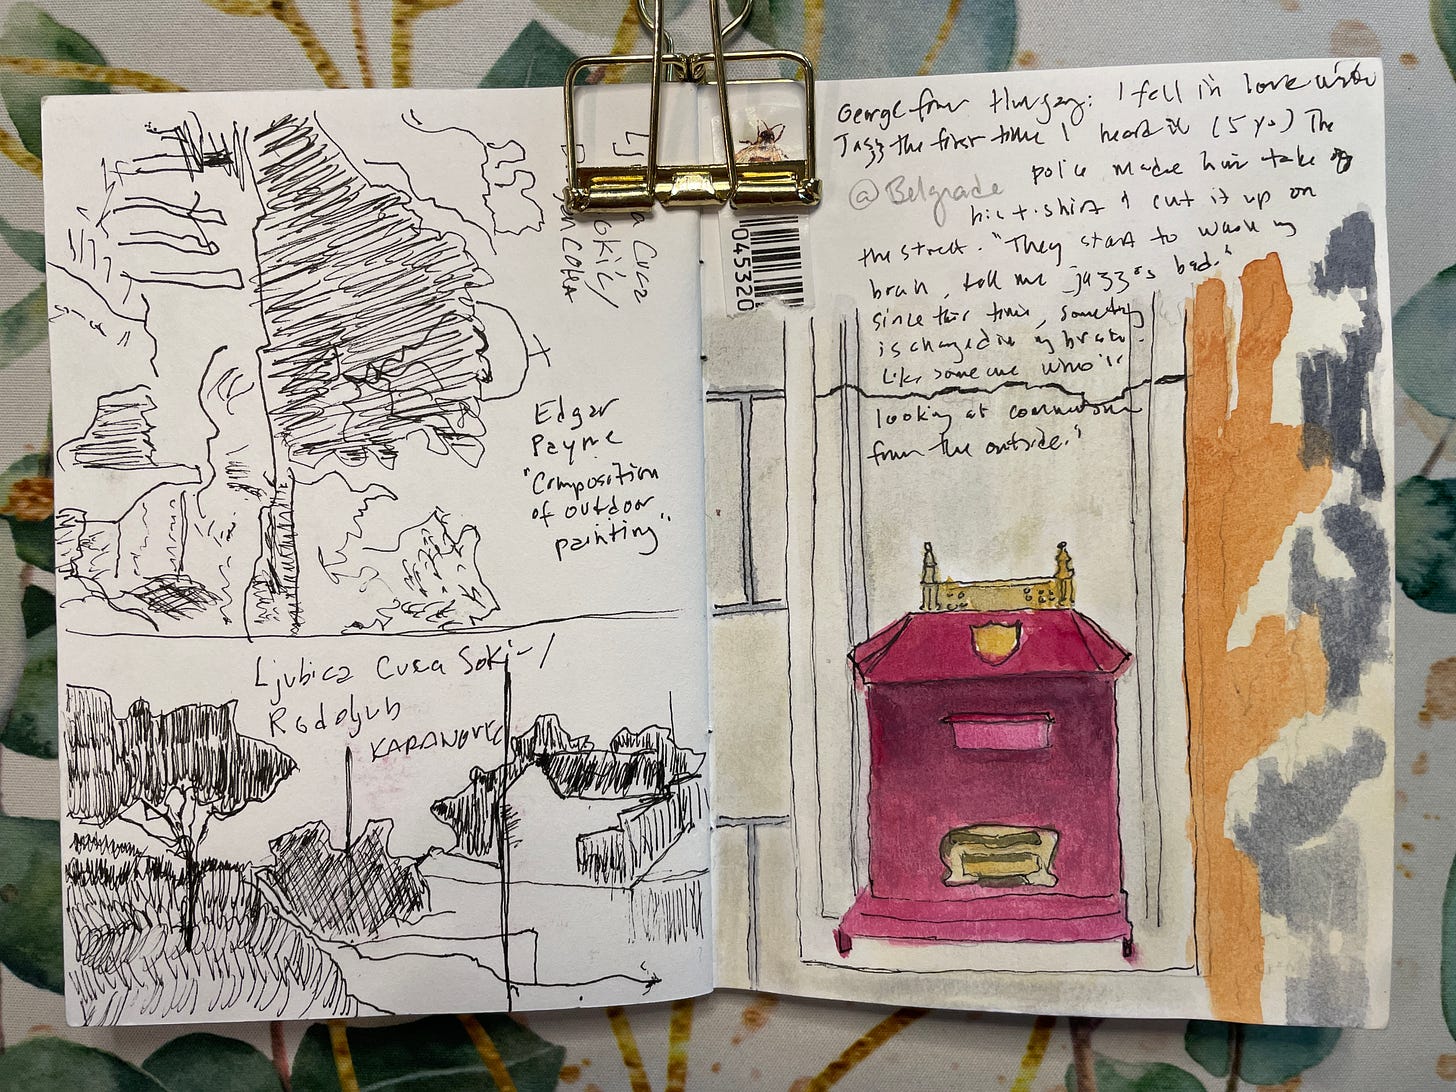 Edgar
Payne
"Composition
of outdoor
painting"
Ljubica Cuca Sokić/
Radoljub
KARANOVIĆ
045320
George from Hungary: I fell in love with
Jazz the first time I heard it (5 yo) The
police made him take off
@Belgrade
his t-shirt & cut it up on
the street. "They start to wash my
brain, tell me jazz is bad."
since this time, something
is changed in my brain.
Like someone who is
looking at communism
from the outside."